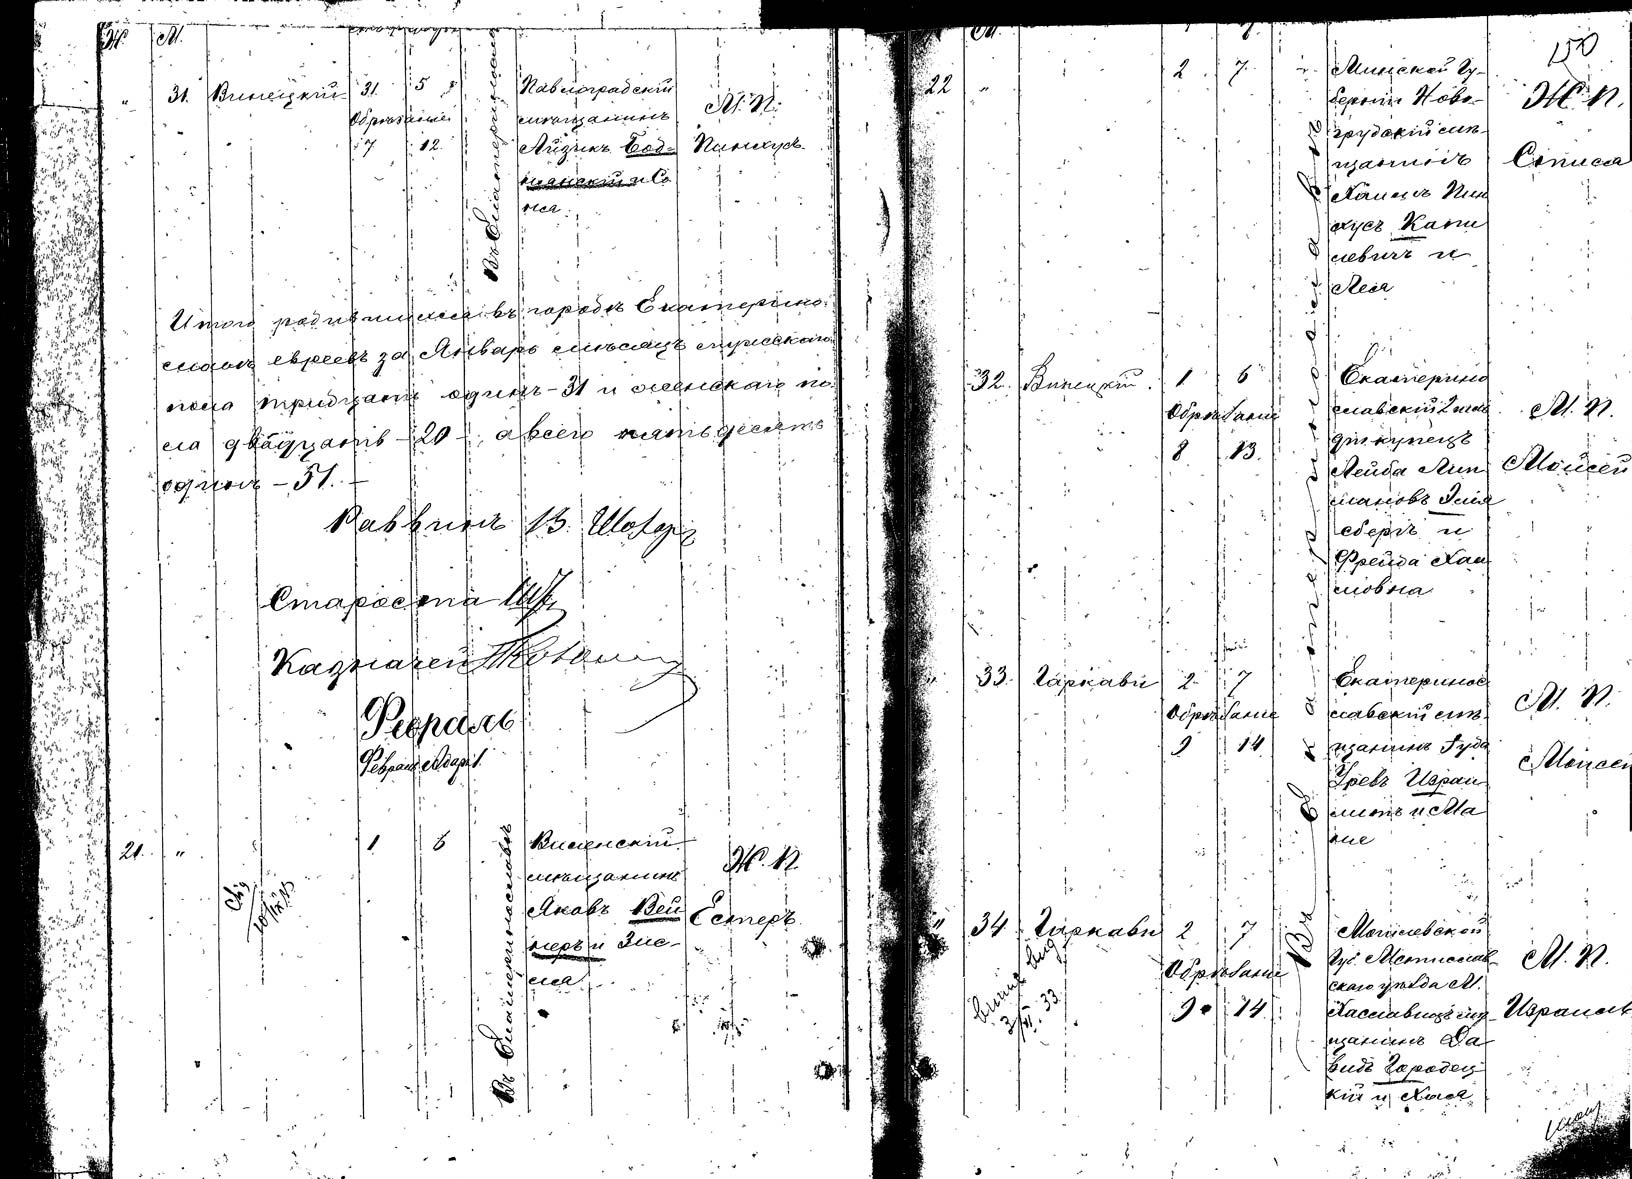 Ж. М.
" 31. Винецкий 31. 5
Обрѣзаніе
7 12
Въ Екатеринославѣ
Павлоградскій
мѣщанинъ
Айзикъ Бод-
нянскій и Со
ня.
М. П.
Пинхусъ.
Итого родившихся въ городѣ Екатерино-
славѣ евреевъ за Январь мѣсяцъ мужескаго
пола тридцать одинъ - 31 и женскаго по-
ла двадцать - 20 -, а всего пятьдесятъ
одинъ - 51. -
Раввинъ В. Шохоръ
Староста
Казначей
Февраль
Февраль Адаръ 1.
21. " 1 6
Въ Екатеринославѣ
Виленскій
мѣщанинъ
Яковъ Вей
неръ и Зис-
ля
Ж. П.
Естеръ
150
22 " 2 7
Въ Екатеринославѣ
Минской Гу-
берніи Ново-
грудскій мѣ-
щанинъ
Хаимъ Пин
хусъ Капи
левичъ и
Лея
Ж. П.
Сописа
32. Винецкій. 1 6
Обрѣзаніе
8 13.
Екатерино
славскій 2 гиль
діи купецъ
Лейба Лип
мановъ Эля
сбергъ и
Фрейда Хаи
мовна
М. П.
Мойсей
" 33. Гаркави 2 7
Обрѣзаніе
9 14
Екатеринос
лавскій мѣ-
щанинъ Іуда
Уревъ Израи
литъ и Ма
ніе
М. П.
Мойсей
" 34 Гаркави 2 7
Обрѣзаніе
9 14
Могилевской
Губ. Мстислав-
скаго уѣзда М.
Хаславичъ мѣ-
щанинъ Да-
видъ Городец
кій и Хая
М. П.
Израиль